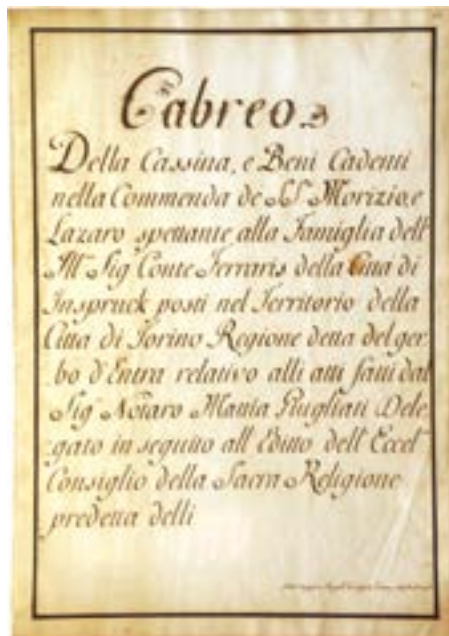 Cabreo
Della Cassina, e Beni Cadenti
nella Commenda de SS. Morizio, e
Lazaro spettante alla Famiglia dell'
Ill. Sig. Conte Ferraris della Citta di
Inspruck posti nel Territorio della
Citta di Torino Regione detta del ger,
bo d'Entra relativo alli atti fatti dal
Sig. Notaro Mattia Giugliati Dele,
gato in seguito all'Editto dell'Eccel.
Consiglio della Sacra Religione
predetta delli